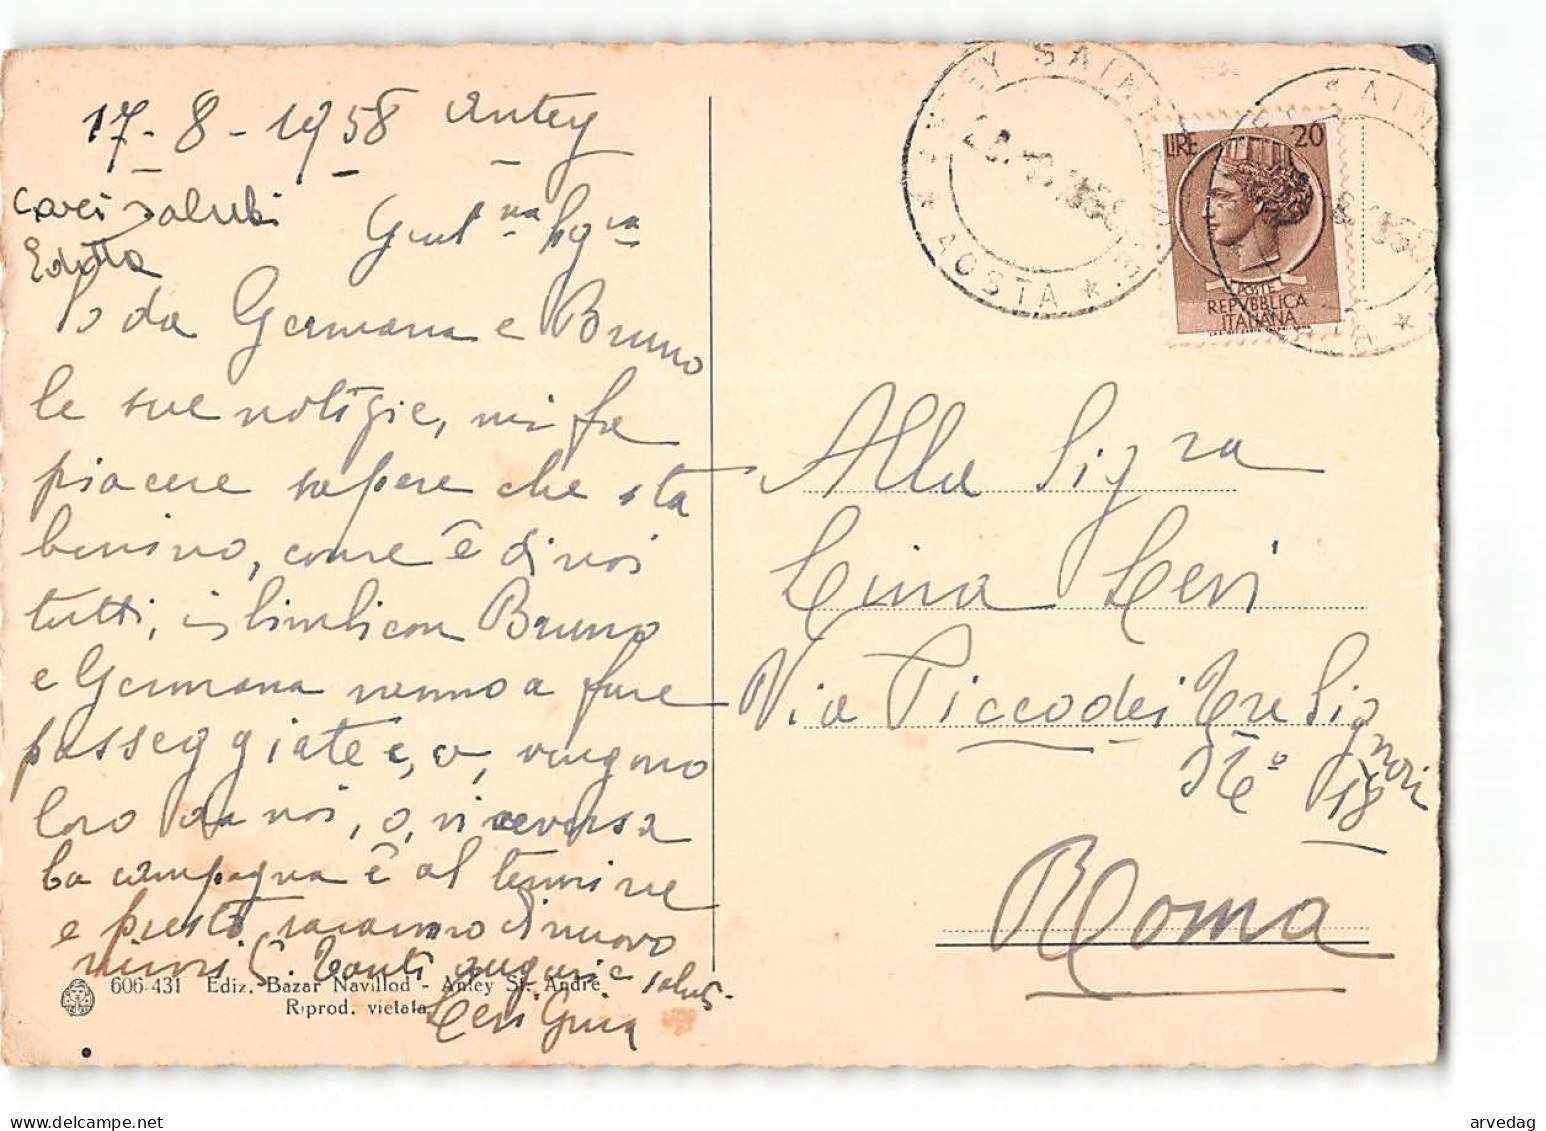 17-8-1958 Antey
Cari saluti
Edetta
Gent.ma Sig.ra
Ho da Germana e Bruno
le sue notizie, mi fa
piacere sapere che sta
benino, come è di noi
tutti, Bruno
e Germana vanno a fare
passeggiate e, o, vengono
loro da noi, o, viceversa
la campagna è al termine
e presto saranno di nuovo
vicini. Tanti auguri e saluti.
Ceri
Alla Sig.ra
Lina Ceri
Via Piè dei Tre Signori
N.º 18
Roma
LIRE 20
POSTE
REPVBBLICA
ITALIANA
ANTEY SAINT ANDRE
* AOSTA *
606-431 Ediz. Bazar Navillod - Antey St. André
Riprod. vietata
arvedag